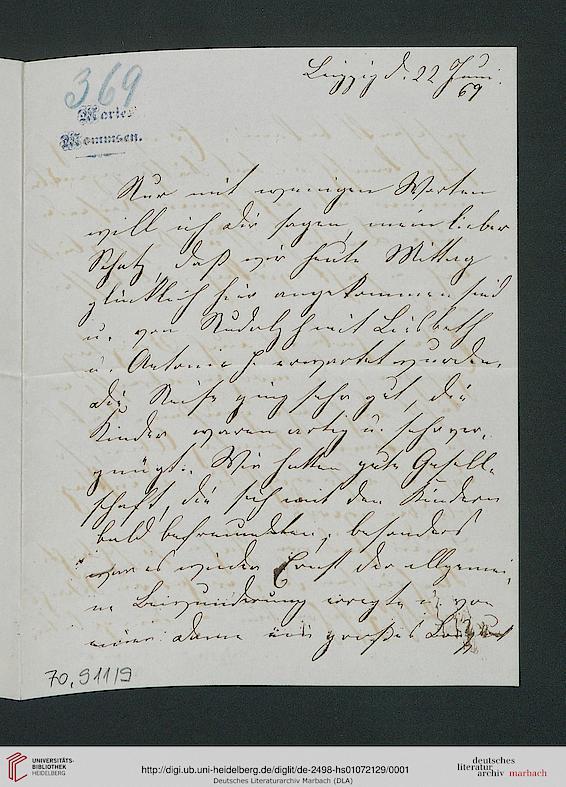 369
Marie
Mommsen.
Leipzig d. 22 Juni.
69
Nur mit wenigen Worten
will ich dir sagen, mein lieber
Schatz, daß wir heute Mittag
glücklich hier angekommen sind
u. von Rudolph mit Lisbeth
u. Antonie H. erwartet wurden.
Die Reise ging sehr gut, die
Kinder waren artig u. sehr ver-
gnügt. Wir hatten gute Gesell-
schaft, die sich mit den Kindern
bald befreundeten, besonders
war es wieder Ernst der allgemei-
ne Bewunderung erregte u. von
einer Dame ein großes
70.911/9
UNIVERSITÄTS-
BIBLIOTHEK
HEIDELBERG
http://digi.ub.uni-heidelberg.de/diglit/de-2498-hs01072129/0001
Deutsches Literaturarchiv Marbach (DLA)
deutsches
literatur
archiv marbach